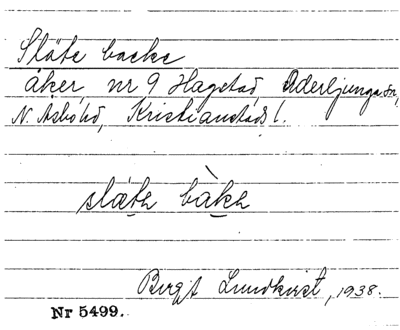 Släte backe
åker, nr 9 Hagstad, Åderljunga sn,
N. Åsbohd, Kristianstads l.
slǽtɘ bàkɘ
Birgit Lundkvist, 1938.
Nr 5499.